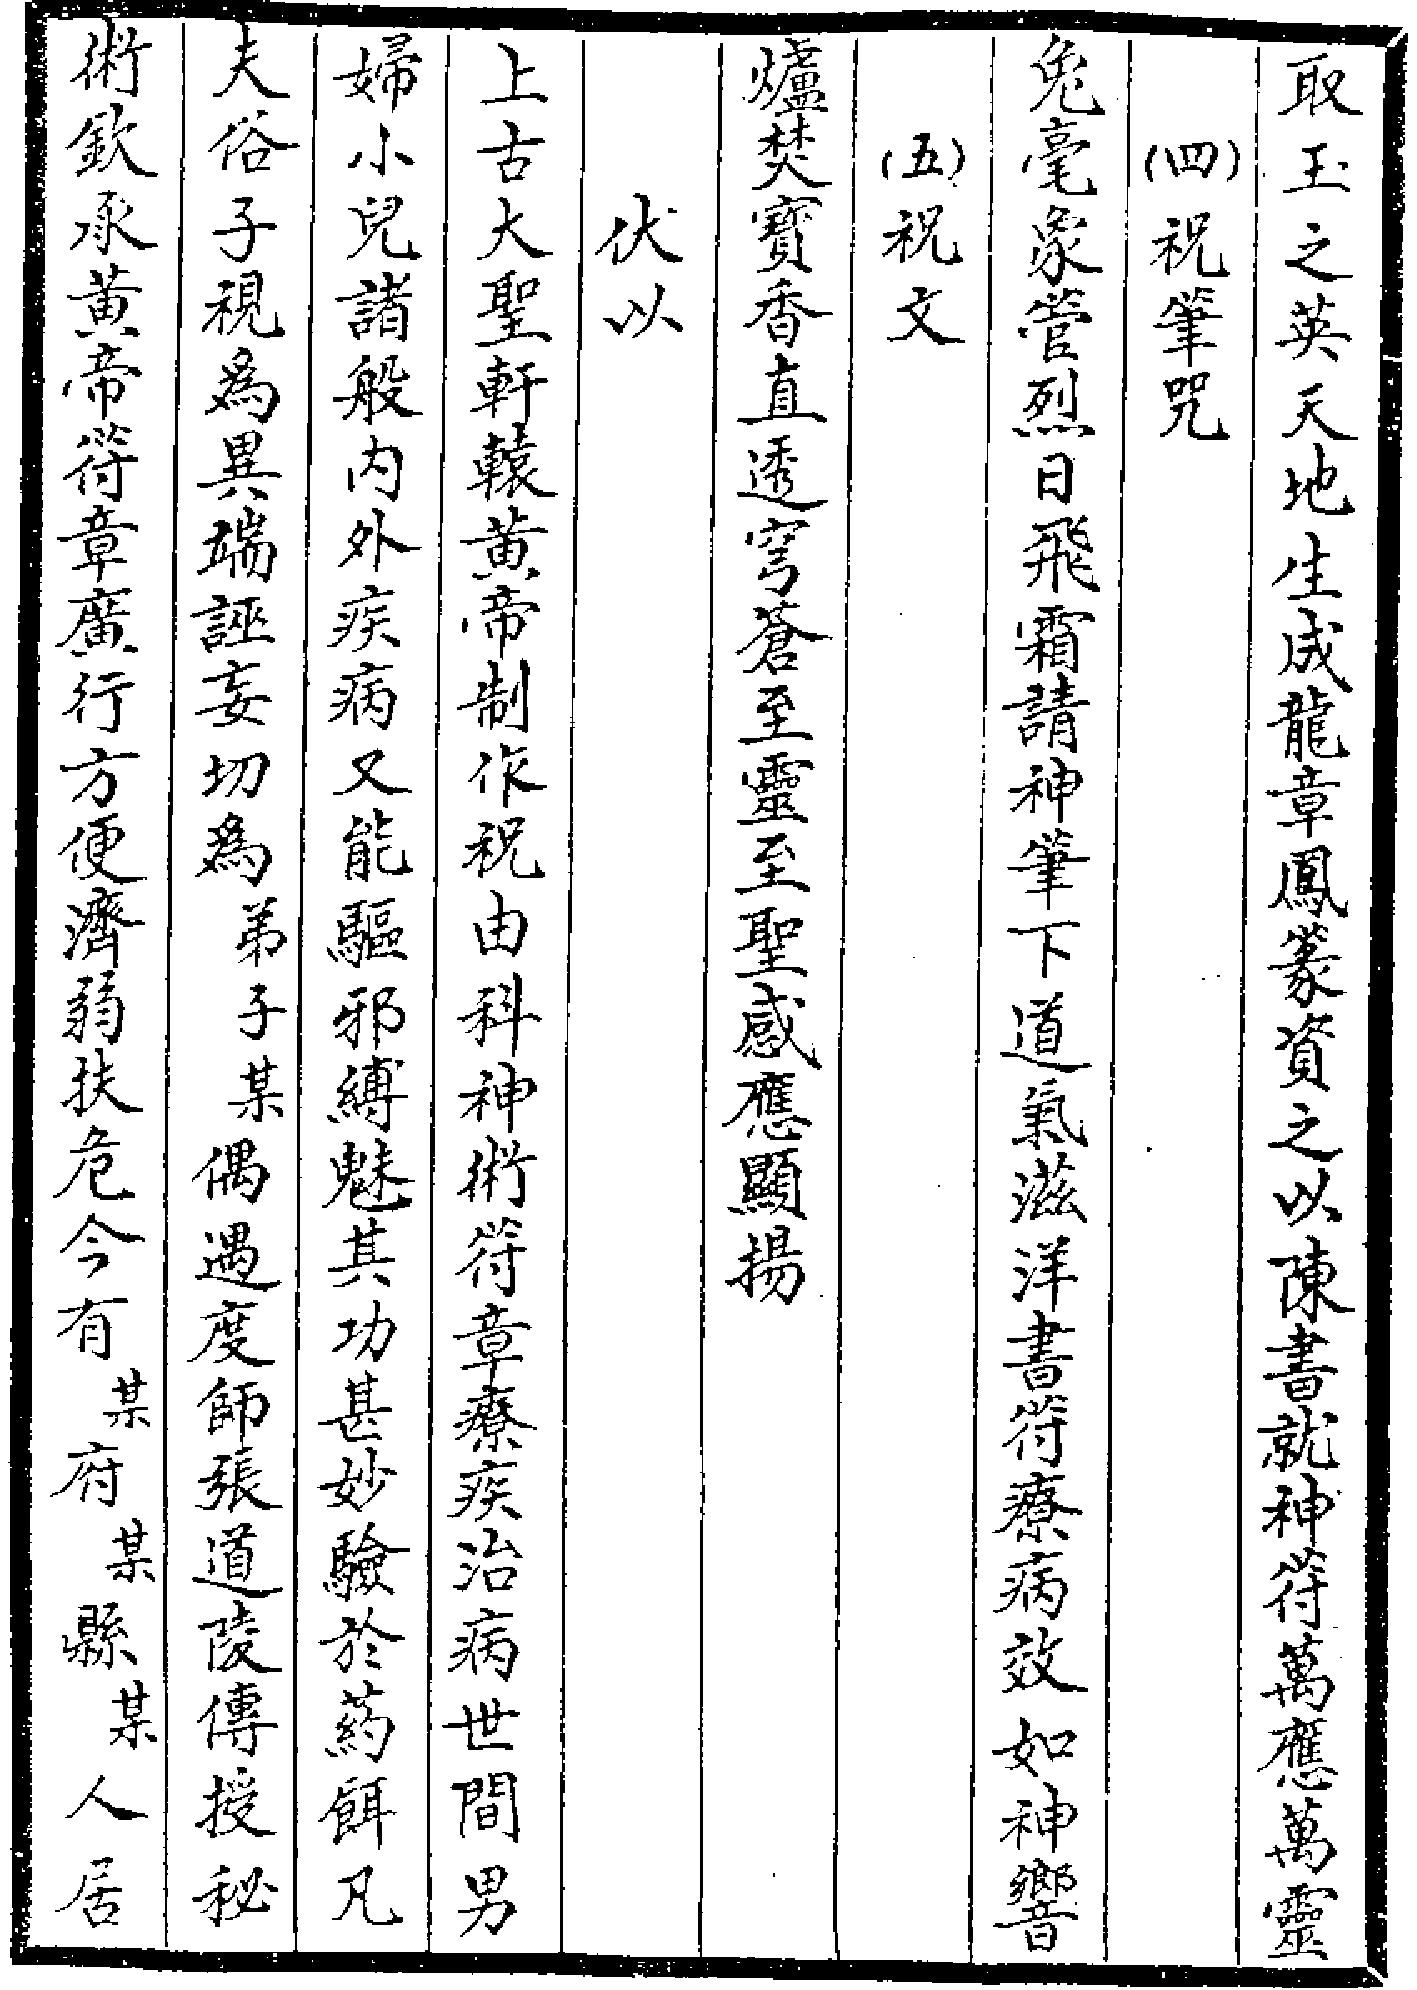 取玉之英天地生成龍章鳳篆資之以陳書就神符萬應萬靈
(四)祝筆咒
兔毫象管烈日飛霜請神筆下道氣滋洋書符療病效如神響
(五)祝文
爐焚寶香直透穹蒼至靈至聖感應顯揚
伏以
上古大聖軒轅黄帝制作祝由科神術符章療疾治病世間男
婦小兒諸般内外疾病又能驅邪縛魅其功甚妙驗於葯餌凡
夫俗子視為異端誣妄切為弟子某偶遇度師張道陵傳授秘
術欽承黄帝符章廣行方便濟弱扶危今有某府某縣某人居